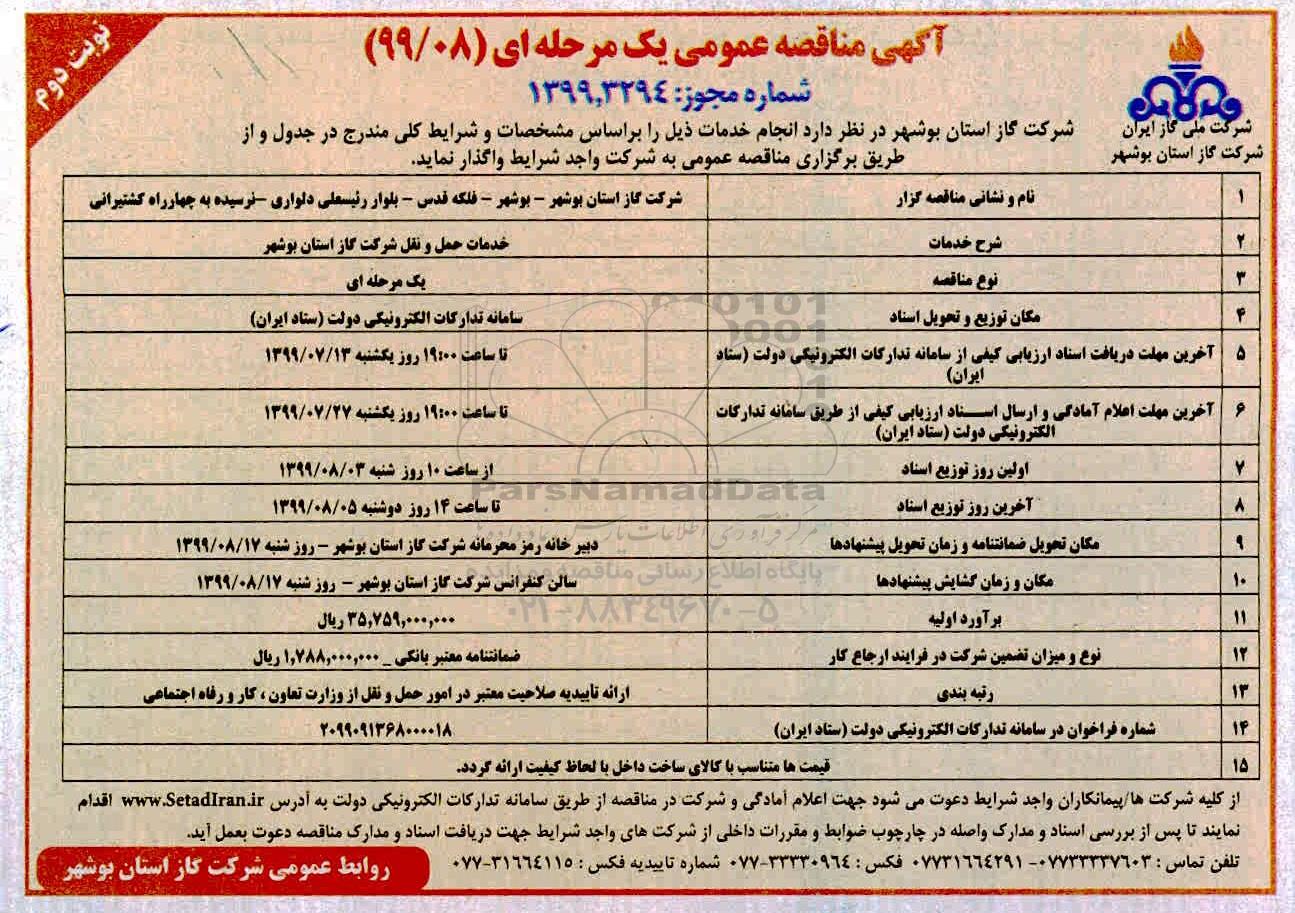 نوبت دوم
آگهی مناقصه عمومی یک مرحله ای (۹۹/۰۸)
شماره مجوز: ۱۳۹۹,۳۲۹۴
شرکت ملی گاز ایران
شرکت گاز استان بوشهر
شرکت گاز استان بوشهر در نظر دارد انجام خدمات ذیل را براساس مشخصات و شرایط کلی مندرج در جدول و از
طریق برگزاری مناقصه عمومی به شرکت واجد شرایط واگذار نماید.
۱ نام و نشانی مناقصه گزار شرکت گاز استان بوشهر – بوشهر – فلکه قدس – بلوار رئیسعلی دلواری –نرسیده به چهارراه کشتیرانی
۲ شرح خدمات خدمات حمل و نقل شرکت گاز استان بوشهر
۳ نوع مناقصه یک مرحله ای
۴ مکان توزیع و تحویل اسناد سامانه تدارکات الکترونیکی دولت (ستاد ایران)
۵ آخرین مهلت دریافت اسناد ارزیابی کیفی از سامانه تدارکات الکترونیکی دولت (ستاد
ایران) تا ساعت ۱۹:۰۰ روز یکشنبه ۱۳۹۹/۰۷/۱۳
۶ آخرین مهلت اعلام آمادگی و ارسال اسناد ارزیابی کیفی از طریق سامانه تدارکات
الکترونیکی دولت (ستاد ایران) تا ساعت ۱۹:۰۰ روز یکشنبه ۱۳۹۹/۰۷/۲۷
۷ اولین روز توزیع اسناد از ساعت ۱۰ روز شنبه ۱۳۹۹/۰۸/۰۳
۸ آخرین روز توزیع اسناد تا ساعت ۱۴ روز دوشنبه ۱۳۹۹/۰۸/۰۵
۹ مکان تحویل ضمانتنامه و زمان تحویل پیشنهادها دبیر خانه رمز محرمانه شرکت گاز استان بوشهر – روز شنبه ۱۳۹۹/۰۸/۱۷
۱۰ مکان و زمان گشایش پیشنهادها سالن کنفرانس شرکت گاز استان بوشهر – روز شنبه ۱۳۹۹/۰۸/۱۷
۱۱ برآورد اولیه ۳۵,۷۵۹,۰۰۰,۰۰۰ ریال
۱۲ نوع و میزان تضمین شرکت در فرایند ارجاع کار ضمانتنامه معتبر بانکی _ ۱,۷۸۸,۰۰۰,۰۰۰ ریال
۱۳ رتبه بندی ارائه تأییدیه صلاحیت معتبر در امور حمل و نقل از وزارت تعاون ، کار و رفاه اجتماعی
۱۴ شماره فراخوان در سامانه تدارکات الکترونیکی دولت (ستاد ایران) ۲۰۹۹۰۹۱۳۶۸۰۰۰۰۱۸
۱۵ قیمت ها متناسب با کالای ساخت داخل با لحاظ کیفیت ارائه گردد.
ParsNamadData
پایگاه اطلاع رسانی مناقصه و مزایده
۰۲۱-۸۸۳۴۹۶۷۰-۵
از کلیه شرکت ها/پیمانکاران واجد شرایط دعوت می شود جهت اعلام آمادگی و شرکت در مناقصه از طریق سامانه تدارکات الکترونیکی دولت به آدرس www.SetadIran.ir اقدام
نمایند تا پس از بررسی اسناد و مدارک واصله در چارچوب ضوابط و مقررات داخلی از شرکت های واجد شرایط جهت دریافت اسناد و مدارک مناقصه دعوت بعمل آید.
تلفن تماس : ۰۷۷۳۳۳۳۷۶۰۳- ۰۷۷۳۱۶۶۴۲۹۱ فکس : ۳۳۳۳۰۹۶۴-۰۷۷ شماره تاییدیه فکس : ۳۱۶۶۴۱۱۵-۰۷۷
روابط عمومی شرکت گاز استان بوشهر